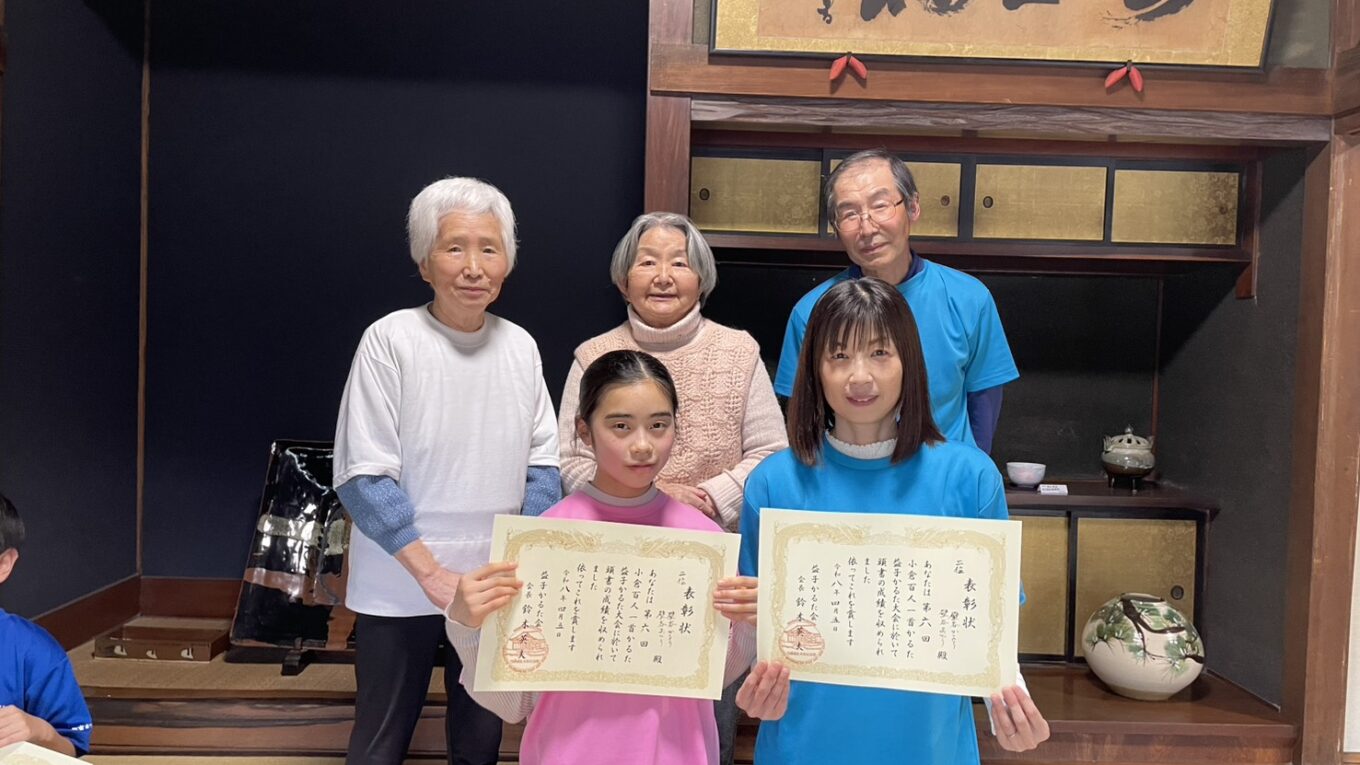 二位
表彰状
殿
あなたは 第六回
小倉百人一首かるた
益子かるた大会に於いて
頭書の成績を収められ
ました
依ってこれを賞します
令和八年四月五日
益子かるた会
会長 鈴木英夫
二位
表彰状
殿
あなたは 第六回
小倉百人一首かるた
益子かるた大会に於いて
頭書の成績を収められ
ました
依ってこれを賞します
令和八年四月五日
益子かるた会
会長 鈴木英夫